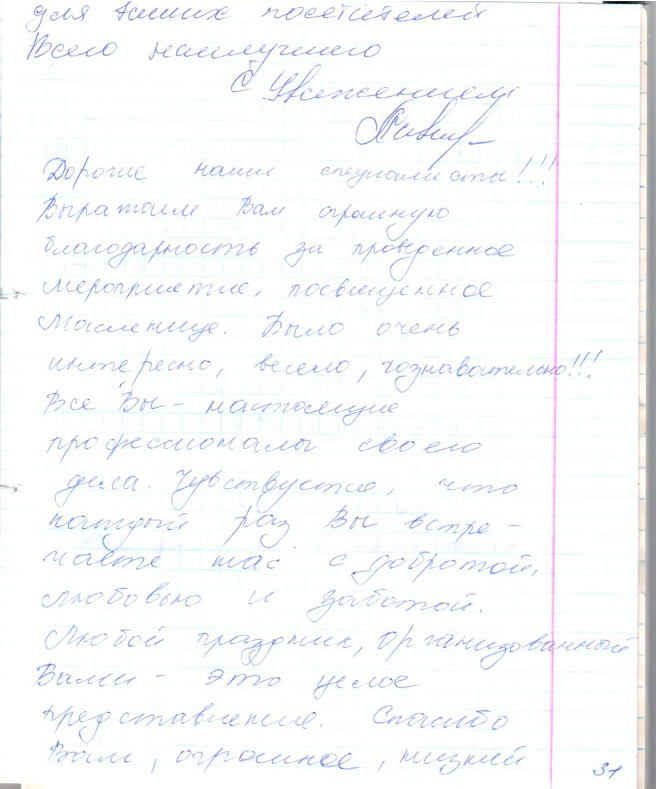 для наших посетителей
Всего наилучшего
С Уважением
Дорогие наши специалисты!!!
Выражаем Вам огромную
благодарность за проведенное
мероприятие, посвященное
Масленице. Было очень
интересно, весело, познавательно!!!
Все Вы – настоящие
профессионалы своего
дела. Чувствуется, что
каждый раз Вы встре-
чаете нас с добротой,
любовью и заботой.
Любой праздник, организованный
Вами – это целое
представление. Спасибо
Вам, огромное, низкий
31